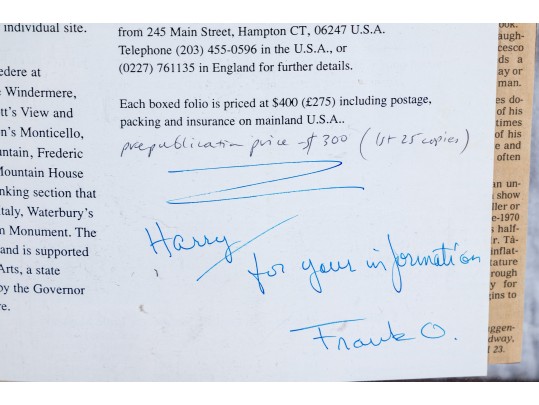 individual site.
edere at
Windermere,
tt's View and
n's Monticello,
ntain, Frederic
Mountain House
nking section that
taly, Waterbury's
n Monument. The
and is supported
Arts, a state
by the Governor
re.
from 245 Main Street, Hampton CT, 06247 U.S.A.
Telephone (203) 455-0596 in the U.S.A., or
(0227) 761135 in England for further details.
Each boxed folio is priced at $400 (£275) including postage,
packing and insurance on mainland U.S.A..
prepublication price $300 (1st 25 copies)
Harry
for your information
Frank O.
augh-
cesco
ds a
ay or
man.
es do-
of his
times
of his
e and
often
an un-
show
ller or
e-1970
half-
r. Tà-
inflat-
tature
rough
y for
gins to
uggen-
dway,
23.